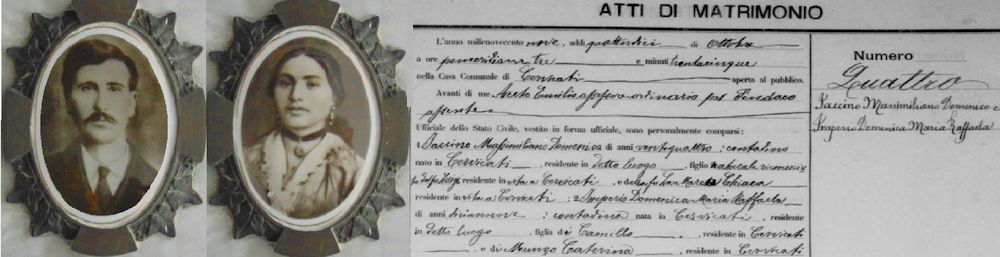 ATTI DI MATRIMONIO
L'anno millenovecento nove, addì quattordici di Ottobre
a ore pomeridiane tre e minuti trentacinque
nella Casa Comunale di Cervicati aperta al pubblico.
Avanti di me Aceto Emilio assessore ordinario pel Sindaco
assente
Ufficiale dello Stato Civile, vestito in forma ufficiale, sono personalmente comparsi:
1 Iaccino Massimiliano Domenico di anni ventiquattro; contadino
nato in Cervicati, residente in detto luogo, figlio naturale
residente in vita a Cervicati, e della fu La Marca Chiara
residente in vita a Cervicati; 2 Imperio Domenica Maria Raffaela
di anni diciannove; contadina nata in Cervicati, residente
in detto luogo, figlia di Camillo, residente in Cervicati
e di Munzo Caterina, residente in Cervicati
Numero
Quattro
Iaccino Massimiliano Domenico e
Imperio Domenica Maria Raffaela